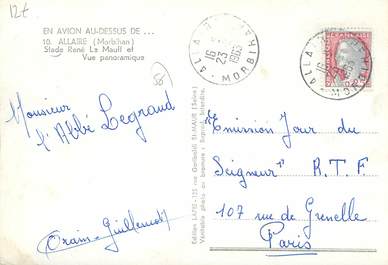 12€
EN AVION AU-DESSUS DE ...
10. ALLAIRE (Morbihan)
Stade René Le Mault et
Vue panoramique
ALLAIRE
16 H
23
1963
MORBIHAN
FRANÇAISE
50
Monsieur
l'Abbé Legrand
Orain-Guillemot
Edition LAPIE - 125 rue Garibaldi ST-MAUR (Seine)
Véritable photo au bromure - Reprod. interdite.
"Emission Jour du
Seigneur" R.T.F
107 rue de Grenelle
Paris